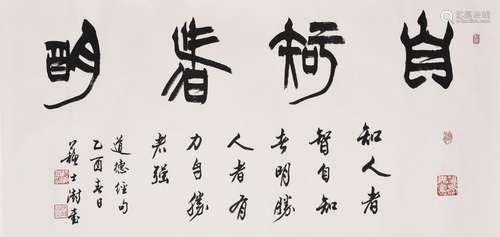 自知者明
知人者
智自知
者明勝
人者有
力自勝
者强
道德经句
乙酉春日
蘇士澍書